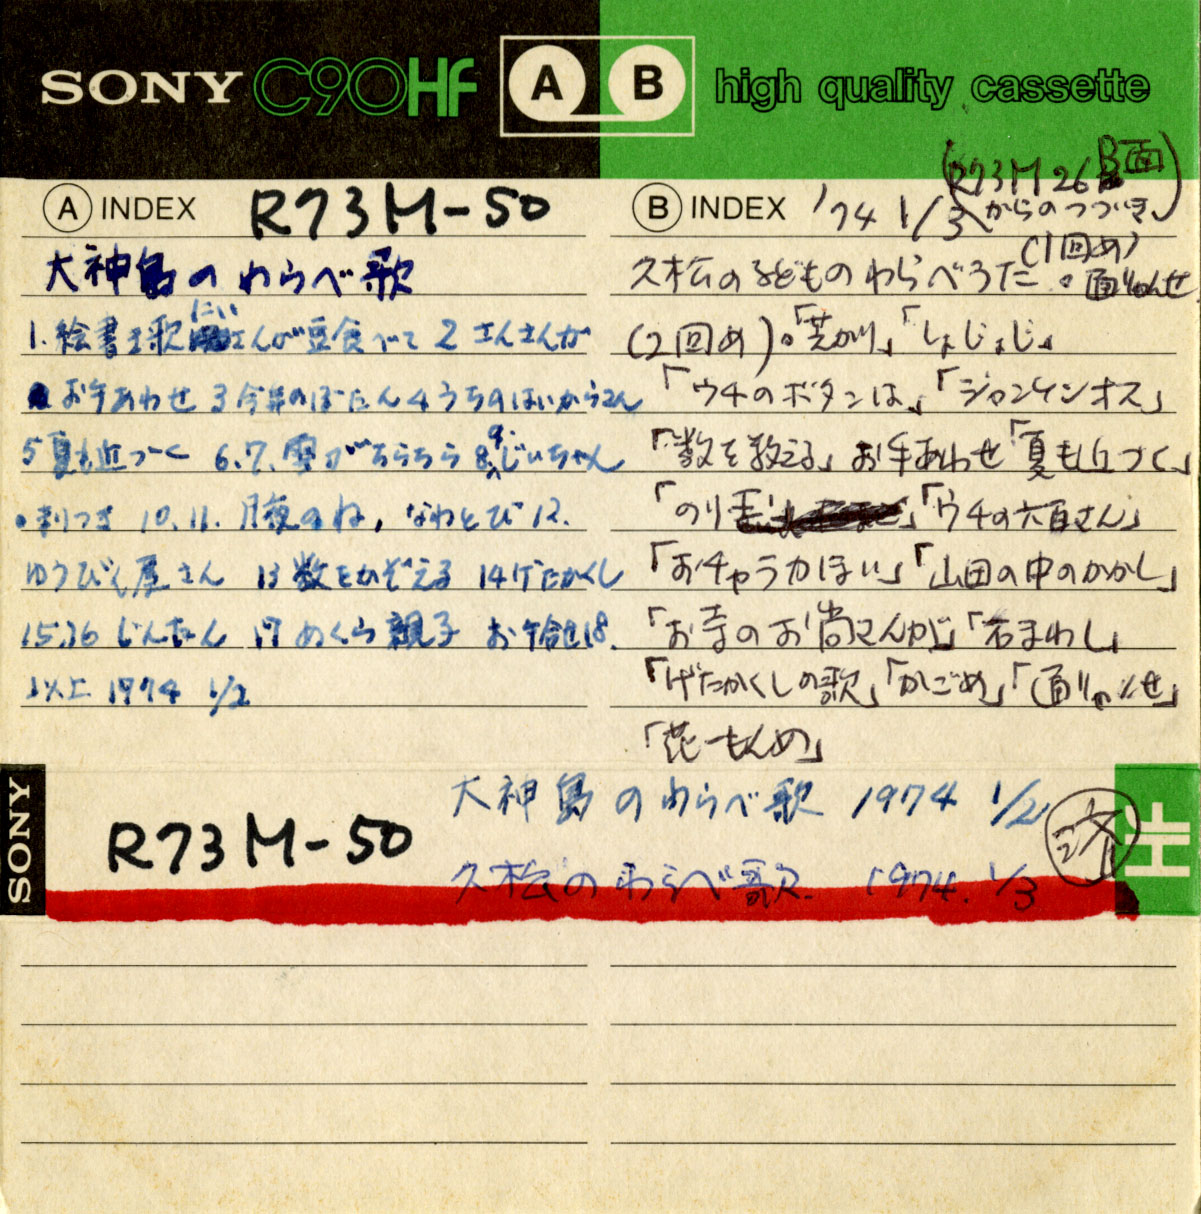 SONY C90HF A B high quality cassette
A INDEX R73M-50
大神島のわらべ歌
1.絵書き歌 にいさんが豆食べて 2 さんさんが
お手あわせ 3 今年のぼたん 4 うちのはいからさん
5 夏も近づく 6.7. 雪がちらちら 8,9.じいちゃん
・まりつき 10.11. なわとび 12.
ゆうびん屋さん 13 数をかぞえる 14 げたかくし
15.16 じんたん 17 めくら親子 お手合せ 18.
以上 1974 1/2
B INDEX '74 1/3 (R73M26B面からのつづき)
久松の子どものわらべうた (1回め)・通りゃんせ
(2回め)・「芝かり」「しょじょじ」
「ウチのボタンは」「ジャンケンオス」
「数を数える」お手あわせ「夏も近づく」
「のり」「ウチの六百さん」
「おチャラカほい」「山田の中のかかし」
「お寺のお尚さんが」「石まわし」
「げたかくしの歌」「かごめ」「通りゃんせ」
「花一もんめ」
SONY
R73M-50
大神島のわらべ歌 1974 1/2
久松のわらべ歌. 1974. 1/3
済
HF